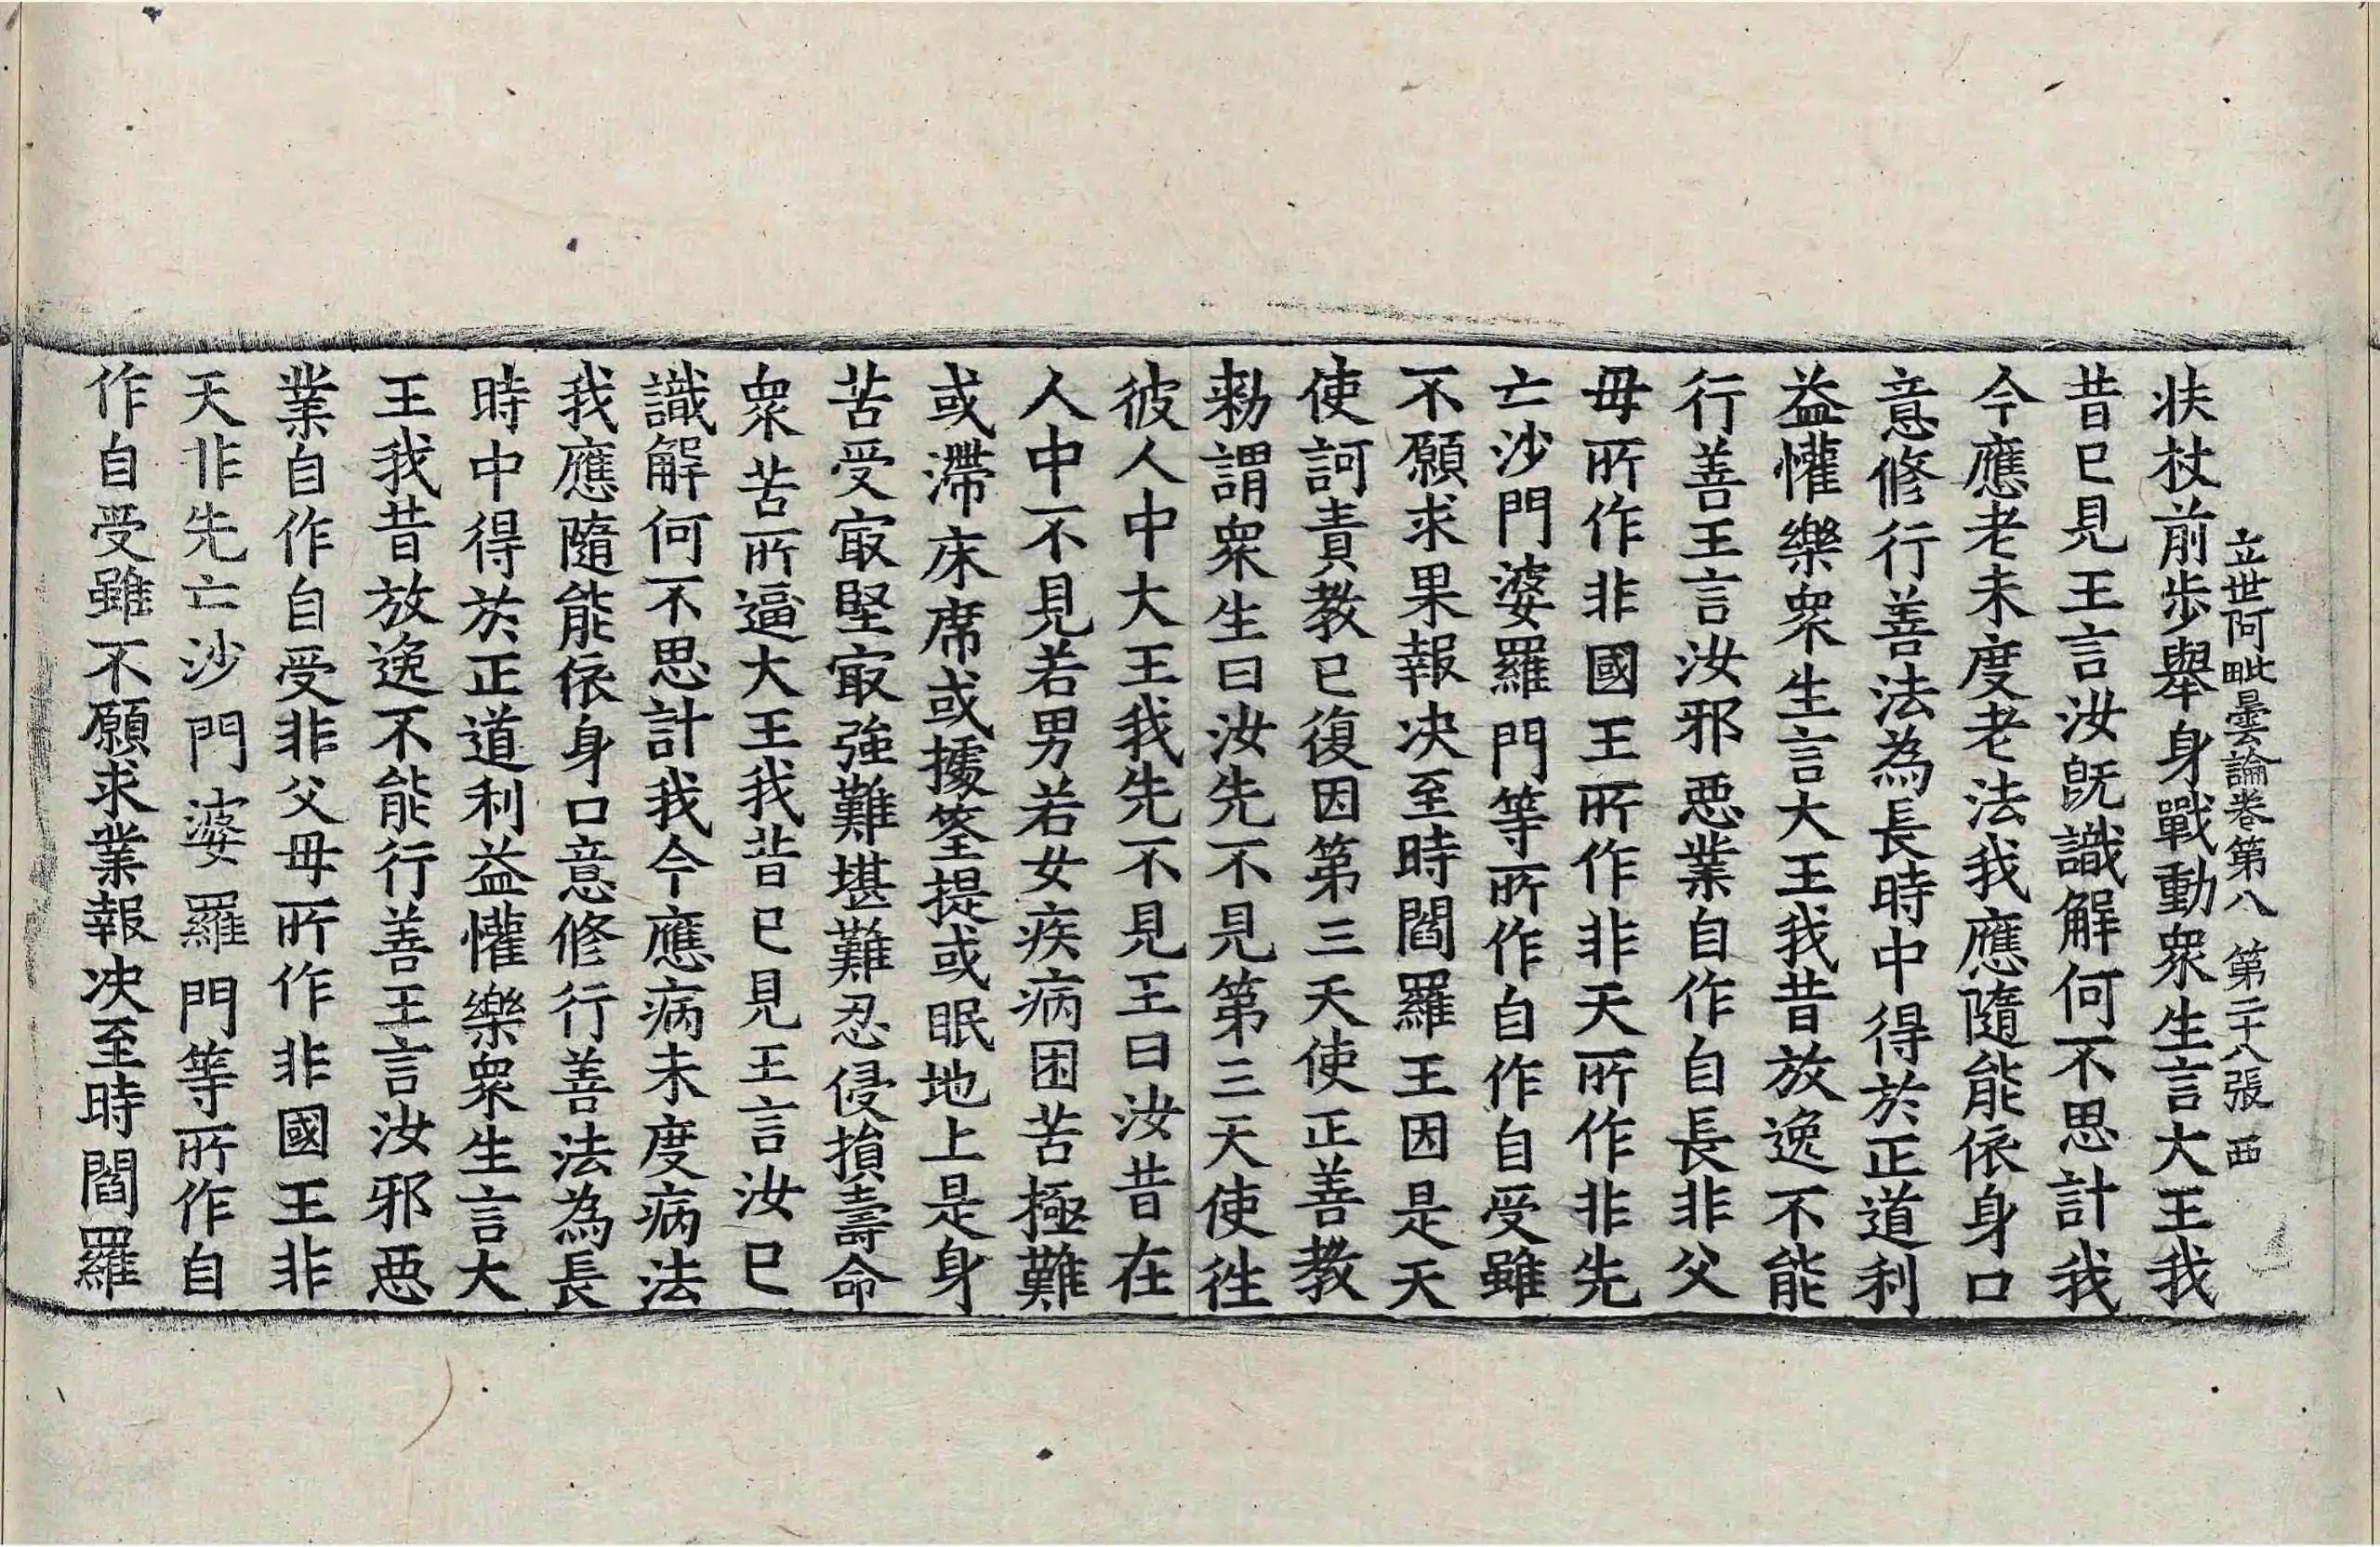 立世阿毗曇論卷第八 第二十八張 西
扶杖前步舉身戰動衆生言大王我
昔已見王言汝旣識解何不思計我
今應老未度老法我應隨能依身口
意修行善法為長時中得於正道利
益懽樂衆生言大王我昔放逸不能
行善王言汝邪惡業自作自長非父
母所作非國王所作非天所作非先
亡沙門婆羅門等所作自作自受雖
不願求果報決至時閻羅王因是天
使訶責教已復因第三天使正善教
勑謂衆生曰汝先不見第三天使徃
彼人中大王我先不見王曰汝昔在
人中不見若男若女疾病困苦極難
或滯床席或據筌提或眠地上是身
苦受㝡堅㝡強難堪難忍侵損壽命
衆苦所逼大王我昔已見王言汝已
識解何不思計我今應病未度病法
我應隨能依身口意修行善法為長
時中得於正道利益懽樂衆生言大
王我昔放逸不能行善王言汝邪惡
業自作自受非父母所作非國王非
天非先亡沙門婆羅門等所作自
作自受雖不願求業報決至時閻羅